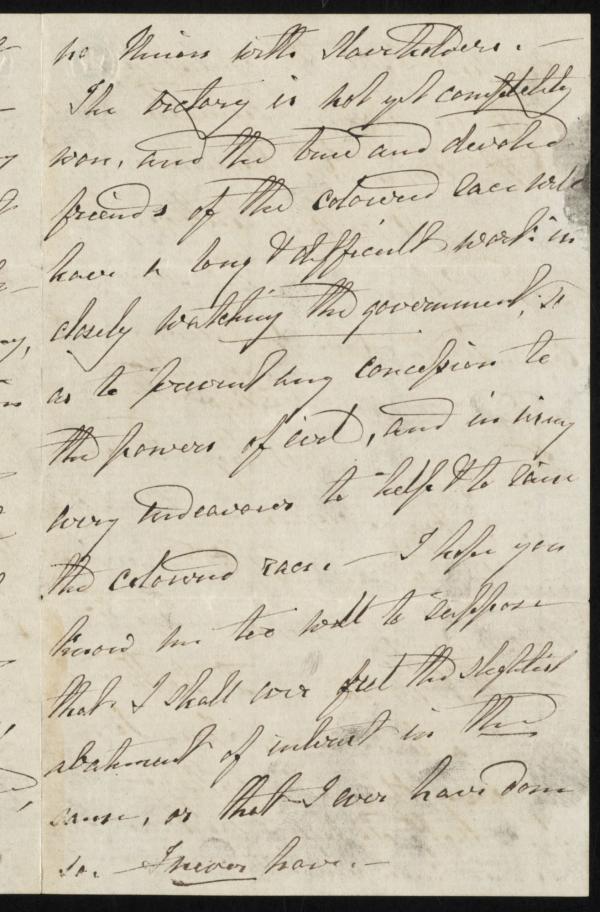 no Union with Slaveholders. —
The victory is not yet completely
won, and the true and devoted
friends of the coloured race will
have a long & difficult work in
closely watching the government, so
as to prevent any concession to
the powers of evil, and in using
every endeavour to help & to raise
the coloured race. — I hope you
know me too well to suppose
that I shall ever feel the slightest
abatement of interest in the
cause, or that I ever have done
so. — I never have. —